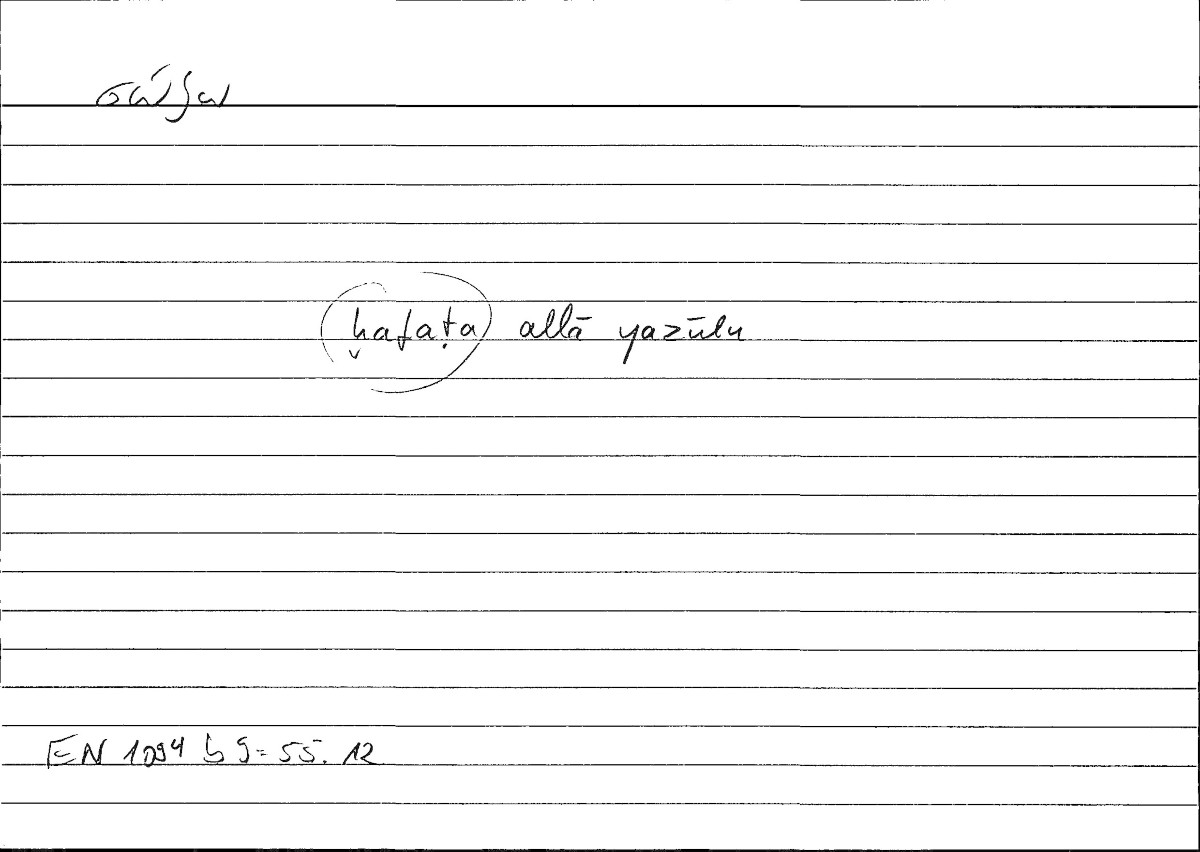 σώζω
ḫafaṭa allā yazūlu
EN 1094 b 9 = 55.12